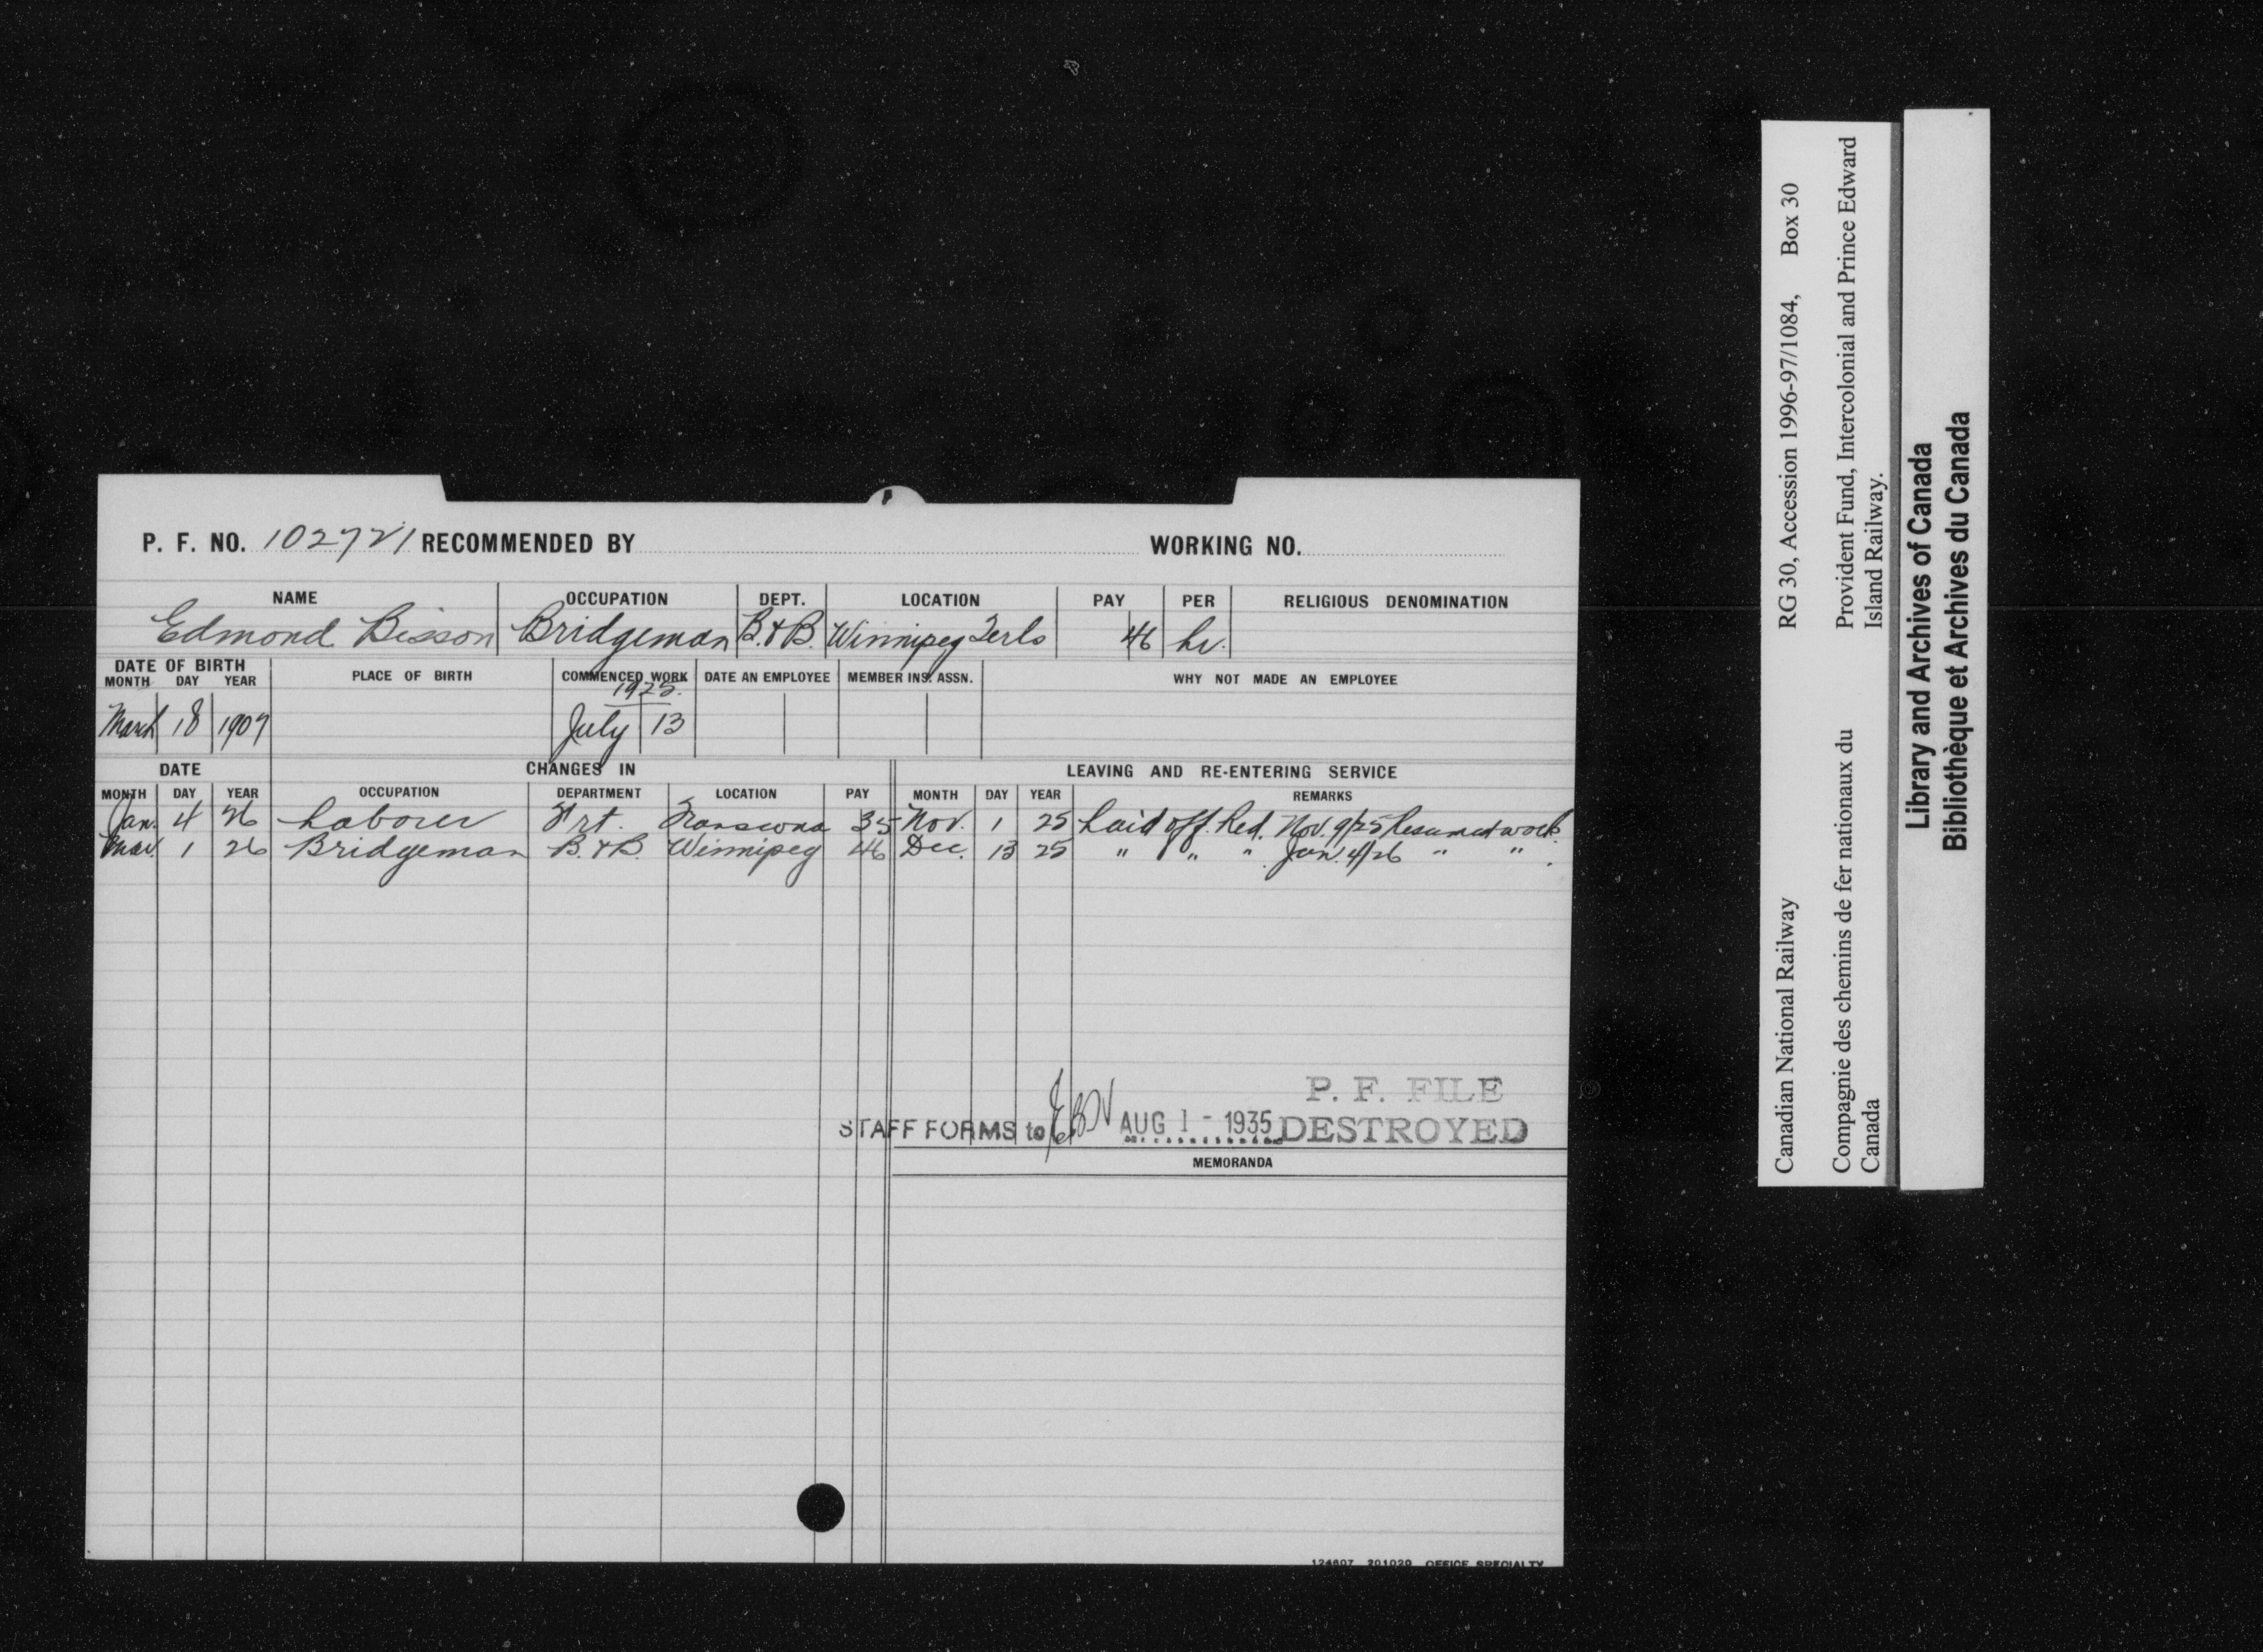 P. F. NO. 102721 RECOMMENDED BY WORKING NO.
NAME OCCUPATION DEPT. LOCATION PAY PER RELIGIOUS DENOMINATION
Edmond Bisson Bridgeman B. & B. Winnipeg Terls 46 hr.
DATE OF BIRTH
MONTH DAY YEAR PLACE OF BIRTH COMMENCED WORK DATE AN EMPLOYEE MEMBER INS. ASSN. WHY NOT MADE AN EMPLOYEE
1925.
March 18 1907 July 13
DATE CHANGES IN LEAVING AND RE-ENTERING SERVICE
MONTH DAY YEAR OCCUPATION DEPARTMENT LOCATION PAY MONTH DAY YEAR REMARKS
Jan. 4 26 Laborer Frt. Transcona 35 Nov. 1 25 Laid off. Red. Nov. 9/25 Resumed work.
Mar. 1 26 Bridgeman B. & B. Winnipeg 46 Dec. 13 25 " " " Jan. 4/26 " " .
P. F. FILE
STAFF FORMS to AUG 1 - 1935 DESTROYED
MEMORANDA
124607 201020 OFFICE SPECIALTY
Canadian National Railway RG 30, Accession 1996-97/1084, Box 30
Compagnie des chemins de fer nationaux du Provident Fund, Intercolonial and Prince Edward
Canada Island Railway.
Library and Archives of Canada
Bibliothèque et Archives du Canada